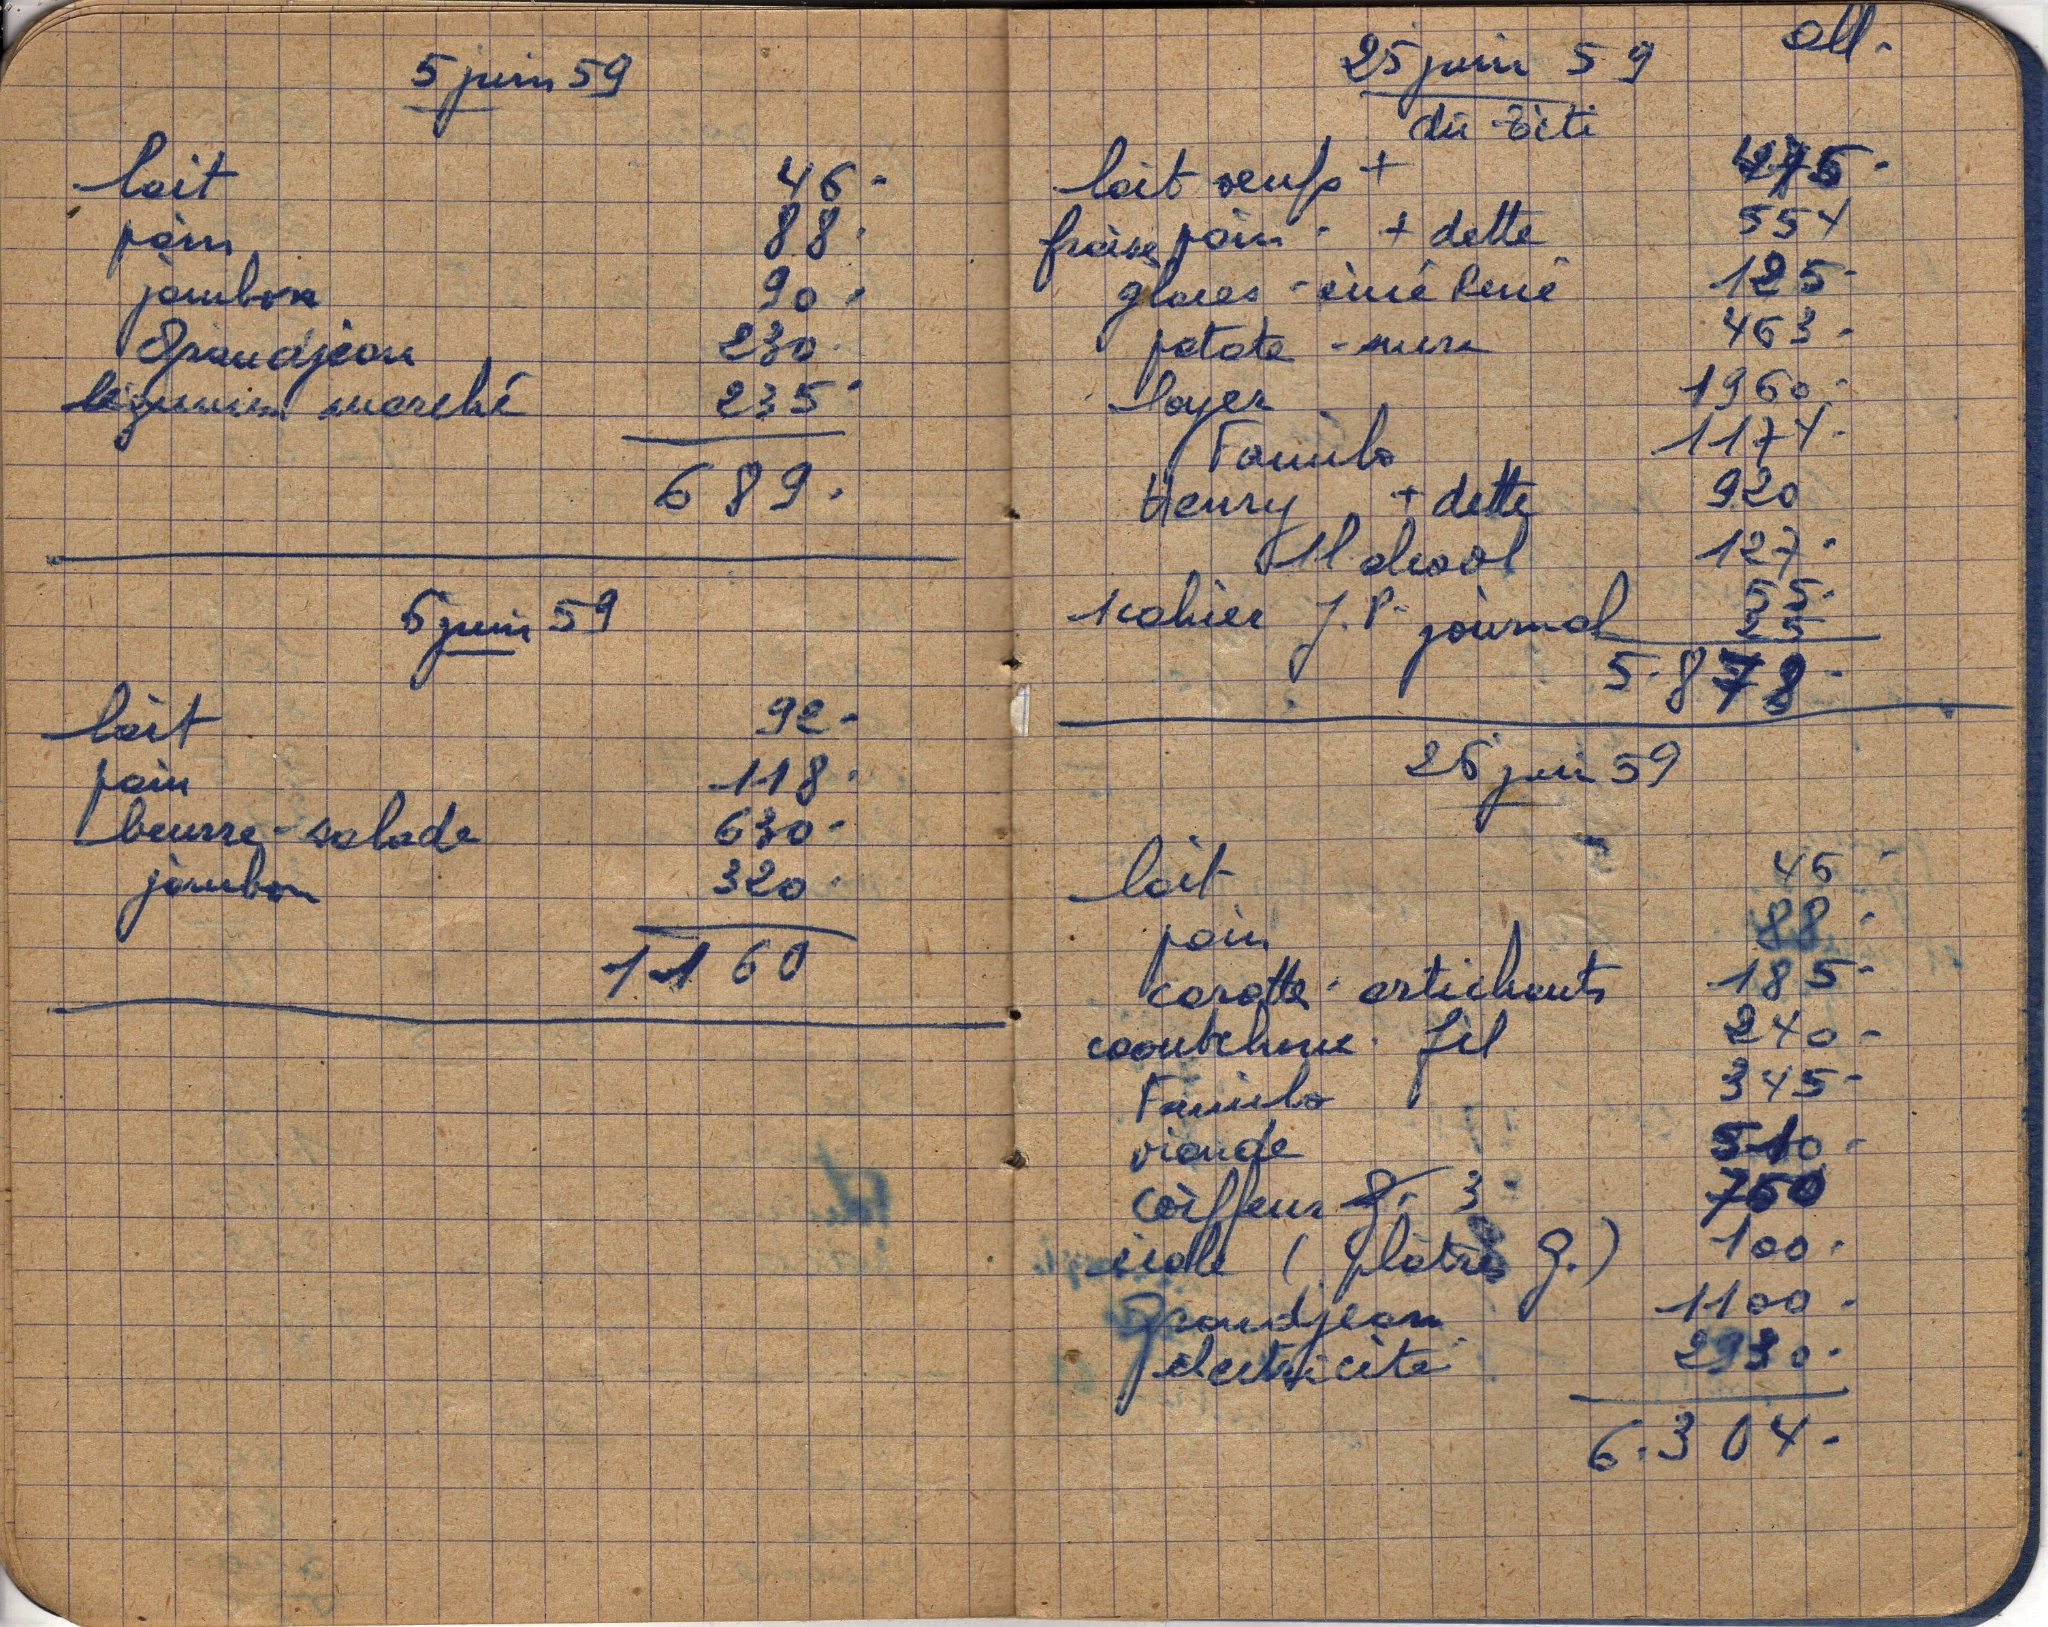 5 juin 59
lait 46-
pain 88.
jambon 90.
Grandjean 230.
légumes marché 235-
689.
6 juin 59
lait 92-
pain 118.
beurre-salade 630-
jambon 320.
1160
all.
25 juin 59
lait oeufs + 475-
fraise pain. + dette 554
glaces - ciné René 125-
patate - 463-
loyer 1960-
Famila 1174-
Henry + dette 920
1l alcool 127-
1 cahier J.P. 55-
journal 25
5.878-
26 juin 59
lait 46-
pain 88-
carotte. artichauts 185-
caoutchouc. fil 240-
Famila 345-
viande 510-
coiffeur 3 760
école (plâtres G.) 100.
Grandjean 1100.
électricité 2930-
6.304-